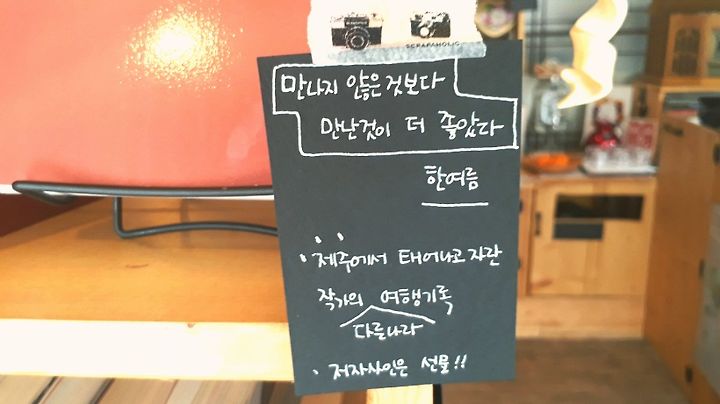 SCRAPAHOLIC
만나지 않은것보다
만난것이 더 좋았다
한여름
· 제주에서 태어나고 자란
작가의 여행기록
다른나라
· 저자사인은 선물!!